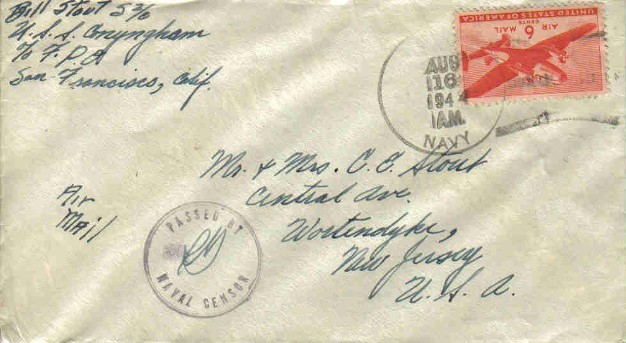 Bill Stout S 2/c
U.S.S. Conyngham
c/o F.P.O
San Francisco, Calif.
UNITED STATES OF AMERICA
CENTS
6 AIR MAIL
AUG
16
1944
1AM.
NAVY
Mr. & Mrs. C. E. Stout
Central Ave.
Wortendyke,
New Jersey
U. S. A.
Air
Mail
PASSED BY
NAVAL CENSOR